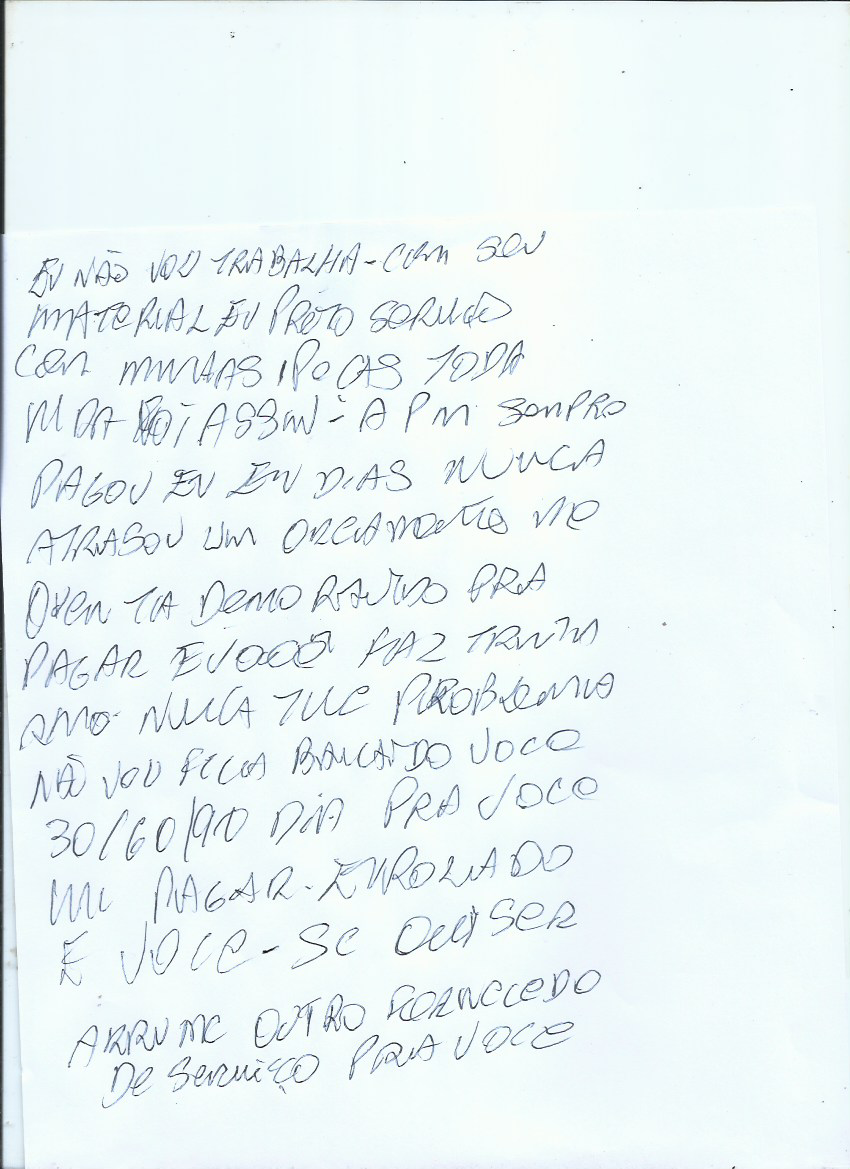 EU NÃO VOU TRABALHA - COM SEU
MATERIAL EU PRETO SERVIÇO
COM MINHAS PEÇAS TODA
VIDA FOI ASSIM - A PM SEMPRE
PAGOU EU EM DIAS NUNCA
ATRASOU UM ORCAMENTO
QUEM TA DEMORANDO PRA
PAGAR E VOCE FAZ TRINTA
ANO NUCA TIVE PROBLEMA
NÃO VOU FICA BANCANDO VOCE
30/60/90 DIA PRA VOCE
MI PAGAR - ENROLADO
E VOCE - SE QUISER
ARRUME OUTRO FORNECEDO
DE SERVIÇO PRA VOCE